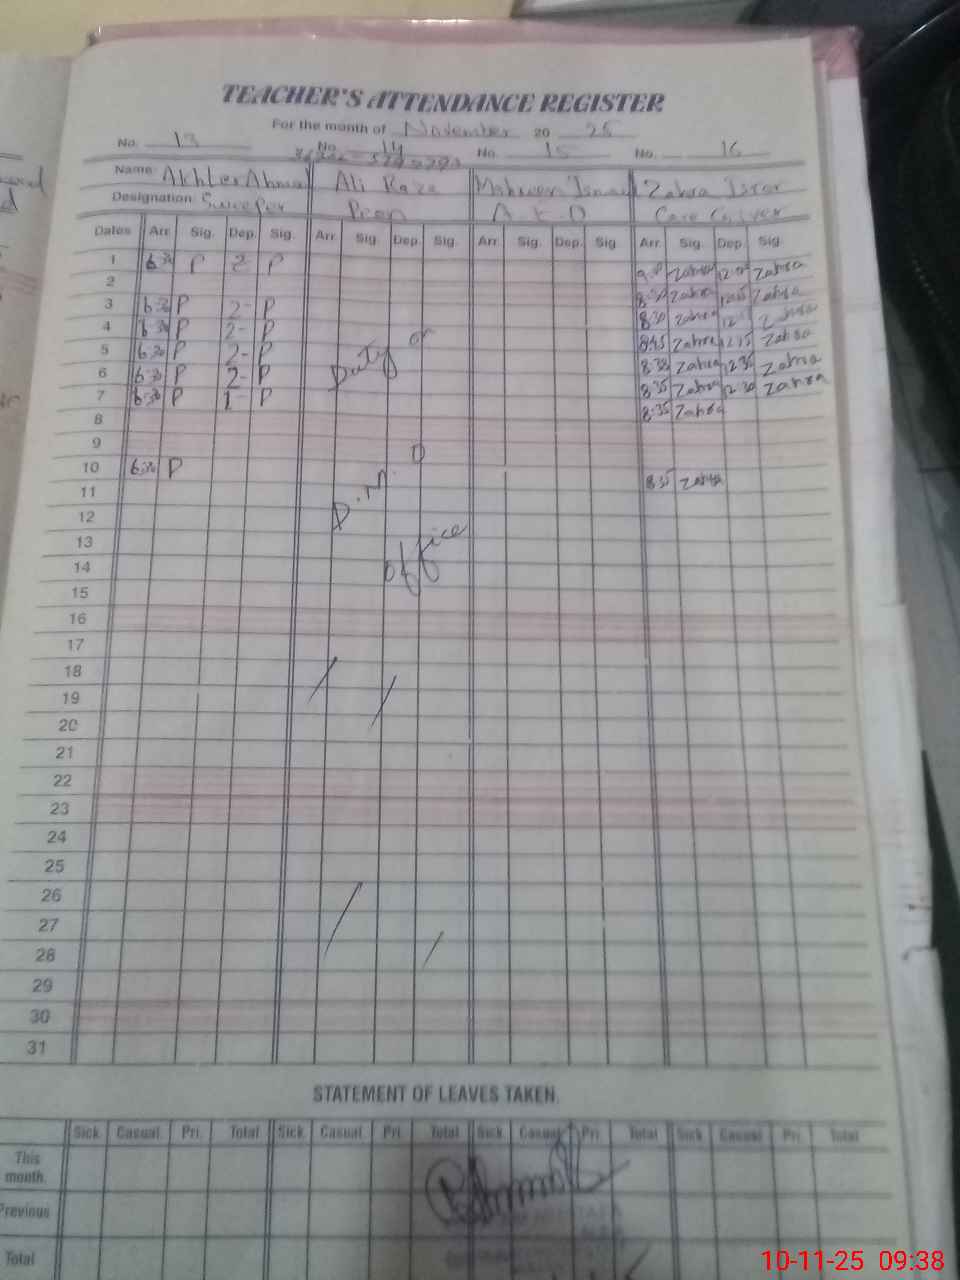 TEACHER'S ATTENDANCE REGISTER
For the month of November 20 25
No. 13 No. 14 No. 15 No. 16
Name: Akhter Ahmad Ali Raza Mahreen Zahra Israr
Designation: Sweeper Peon A E O Care Giver
Dates Arr. Sig. Dep. Sig. Arr. Sig. Dep. Sig. Arr. Sig. Dep. Sig. Arr. Sig. Dep. Sig.
1 6:30 P 2- P 9:00 Zahra 12:00 Zahra
2 8:30 Zahra Zahra
3 6:30 P 2- P 8:30 Zahra Zahra
4 6:30 P 2- P 8:45 Zahra 12:15 Zahra
5 6:30 P 2- P Duty on 8:38 Zahra 12:35 Zahra
6 6:30 P 2- P 8:35 Zahra 12:30 Zahra
7 6:30 P 1- P 8:35 Zahra
8
9
10 6:30 P D.M.O 8:35 Zahra
11
12
13
14 office
15
16
17
18
19
20
21
22
23
24
25
26
27
28
29
30
31
STATEMENT OF LEAVES TAKEN.
Sick Casual Pri. Total Sick. Casual Pri. Total Sick Casual Pri. Total Sick Casual Pri. Total
This month.
Previous
Total
10-11-25 09:38